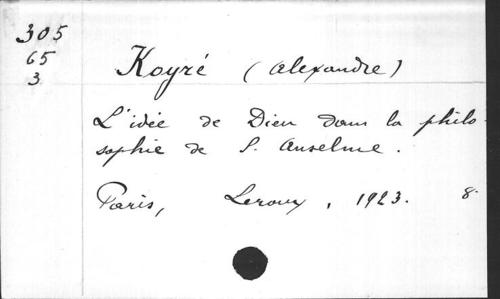 305
65
3
Koyré (Alexandre)
L'idée de Dieu dans la philo-
sophie de S. Anselme.
Paris, Leroux, 1923. 8.